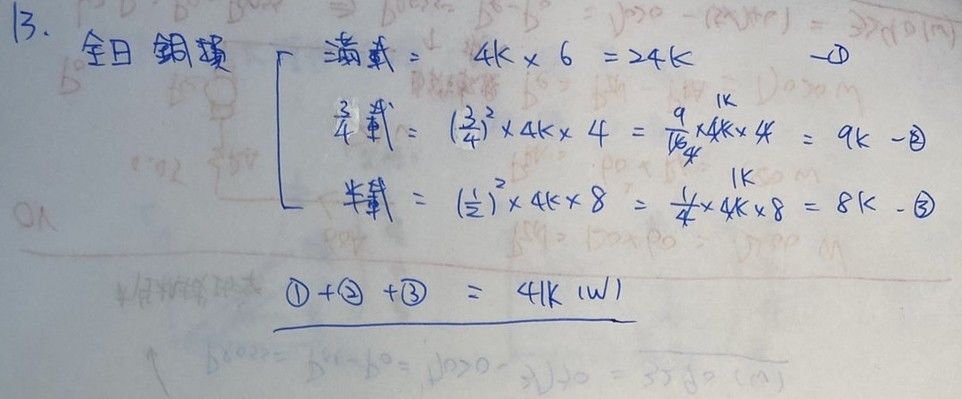 13.
全日銅損 滿載 = 4K × 6 = 24K —①
3/4載 = (3/4)² × 4K × 4 = 9/16 × 4K × 4 = 9K —②
半載 = (1/2)² × 4K × 8 = 1/4 × 4K × 8 = 8K —③
① + ② + ③ = 41K (W)